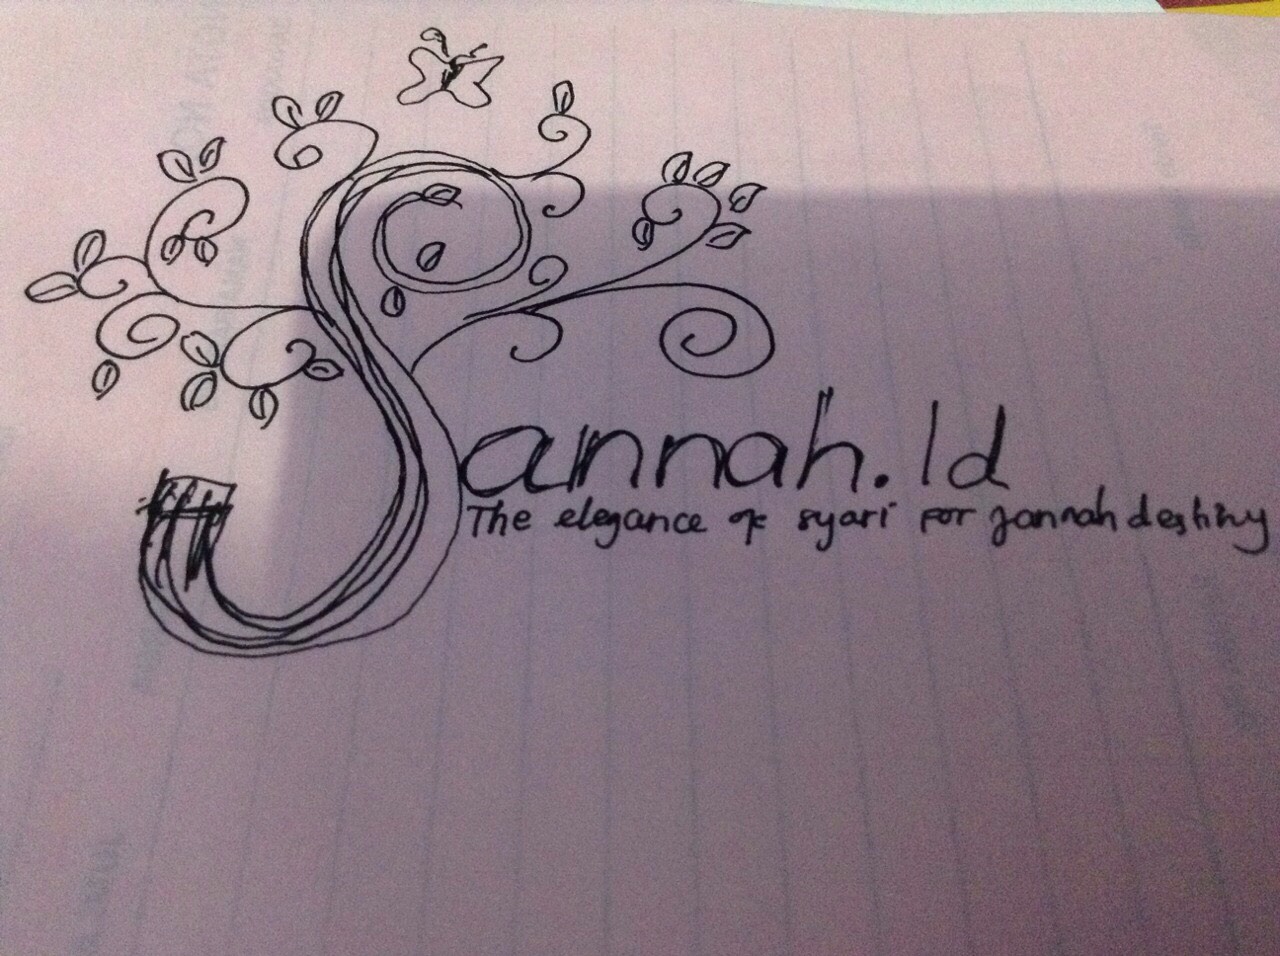 Sannah.Id
The elegance of syari for jannah destiny